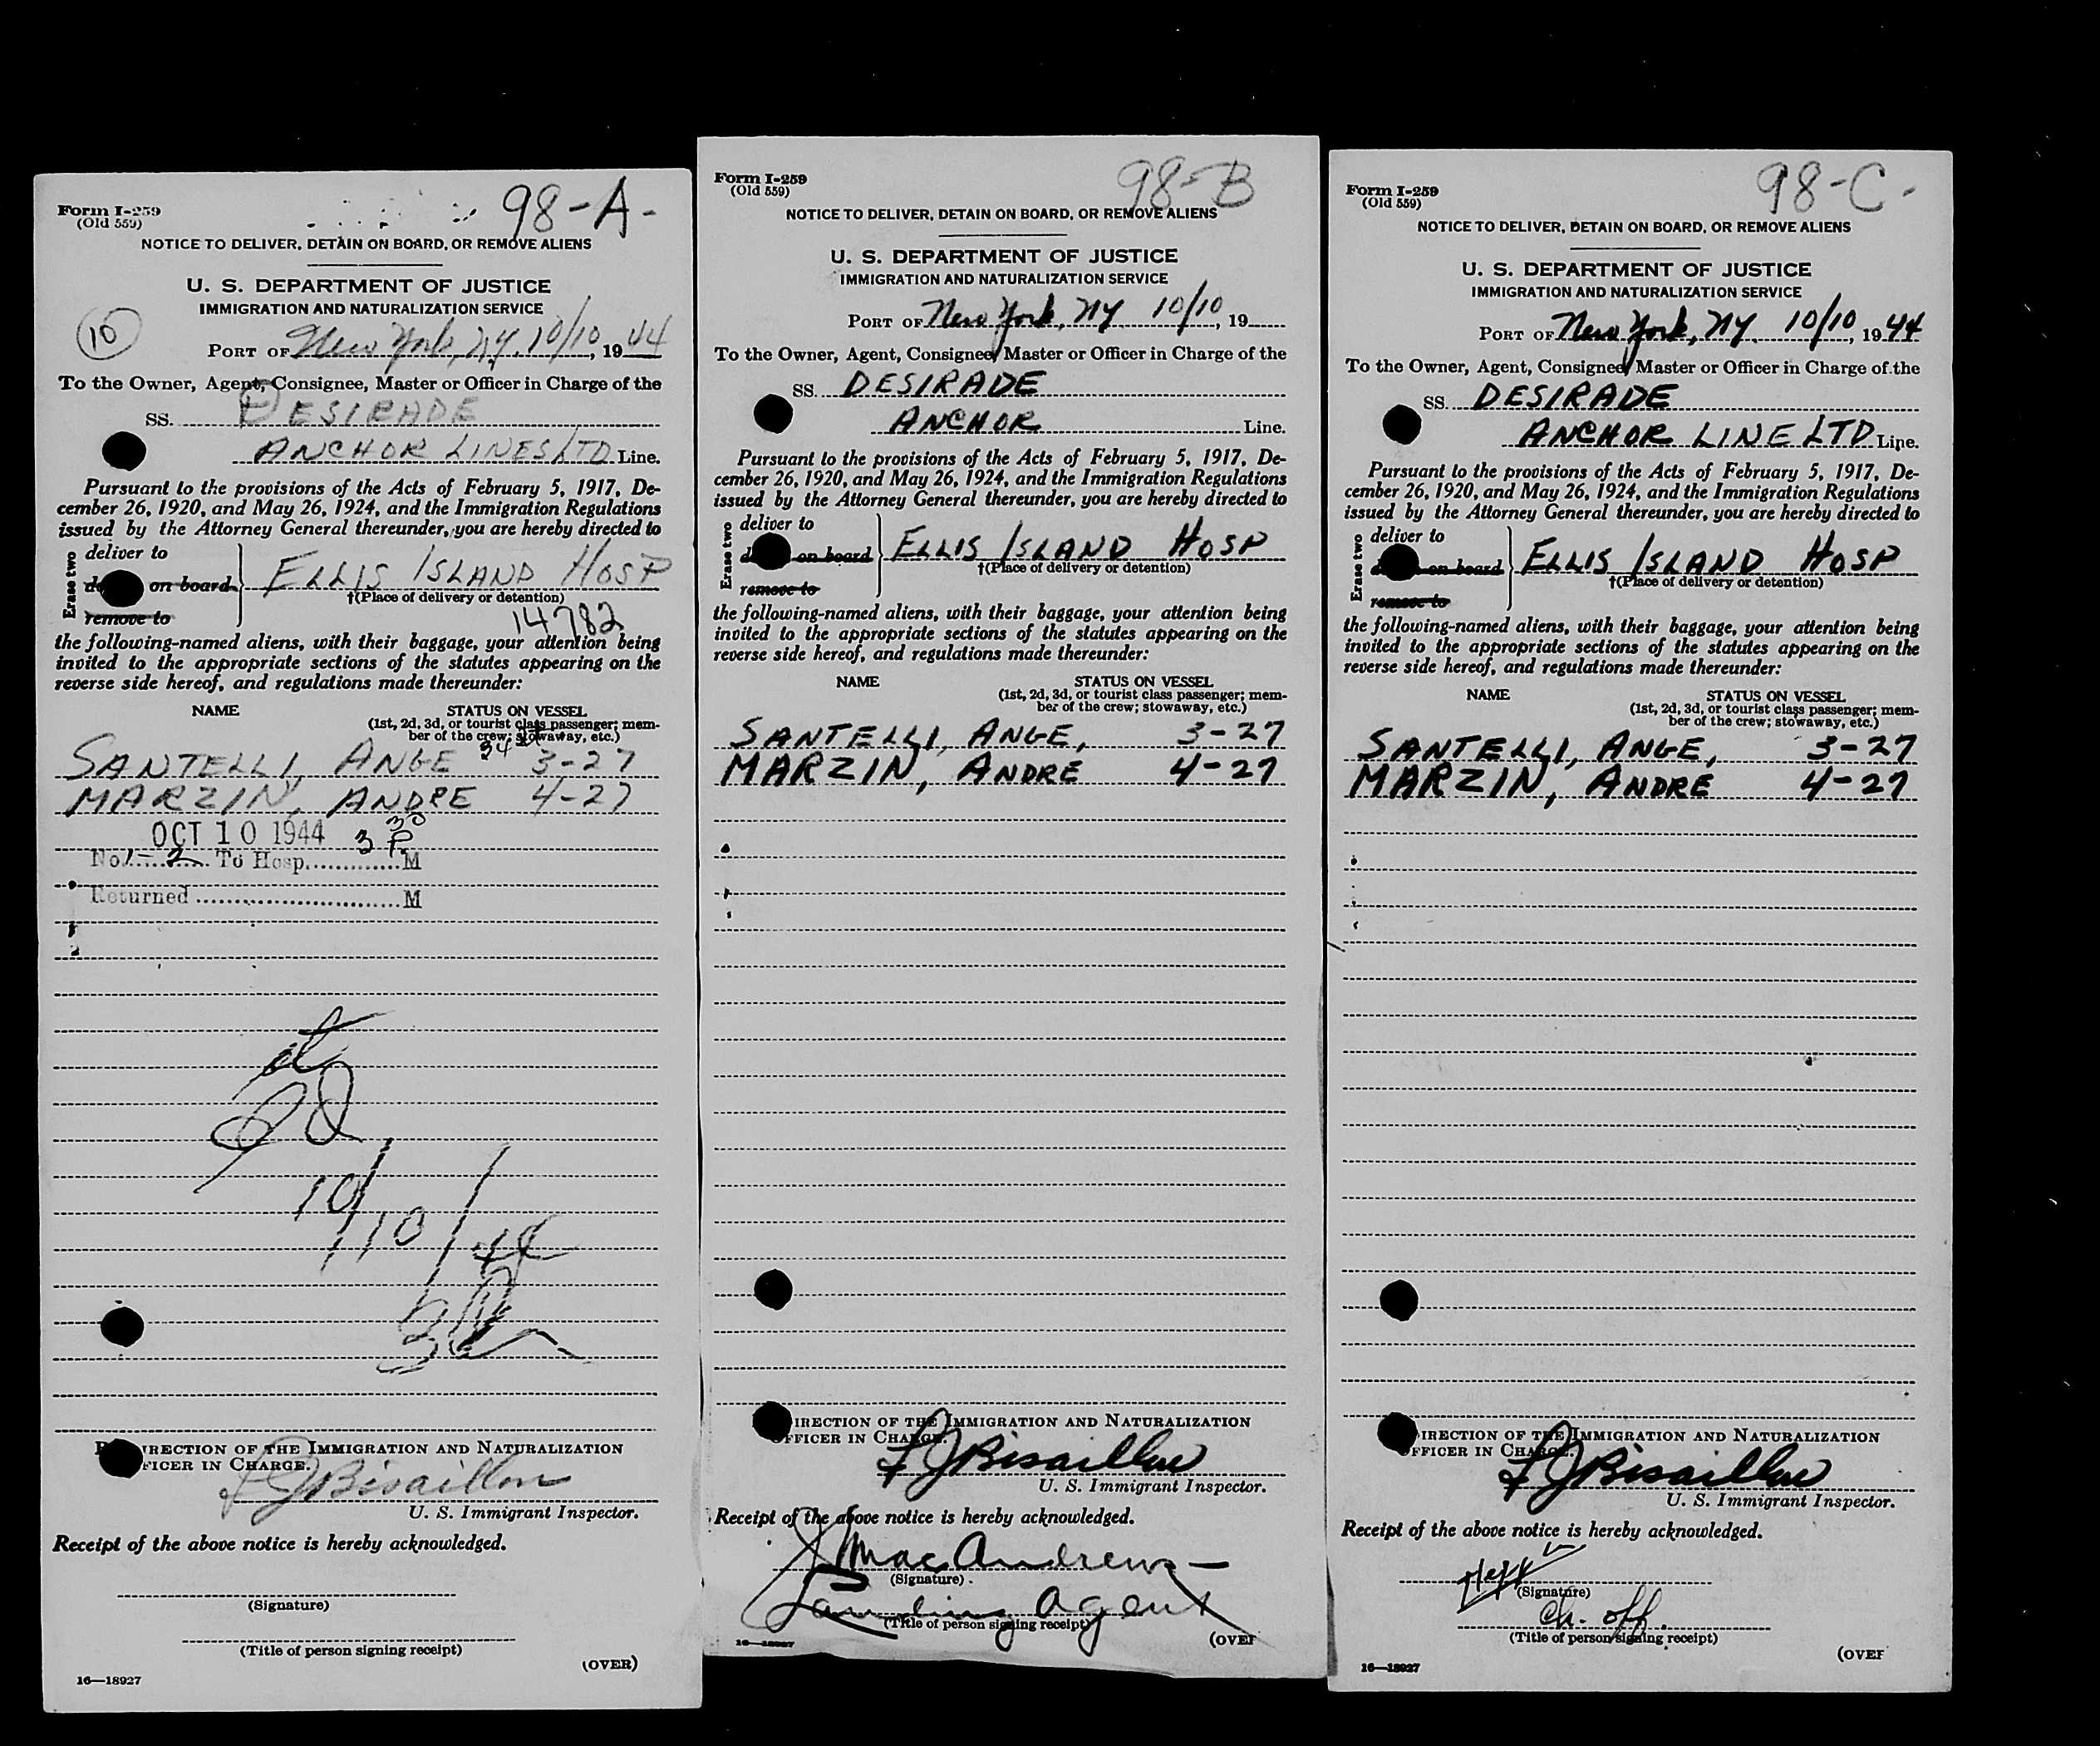 98-A-
Form I-259
(Old 559)
NOTICE TO DELIVER, DETAIN ON BOARD, OR REMOVE ALIENS
U. S. DEPARTMENT OF JUSTICE
IMMIGRATION AND NATURALIZATION SERVICE
10
PORT OF New York, NY. 10/10, 1944
To the Owner, Agent, Consignee, Master or Officer in Charge of the
SS. DESIRADE
ANCHOR LINES LTD Line.
Pursuant to the provisions of the Acts of February 5, 1917, De-
cember 26, 1920, and May 26, 1924, and the Immigration Regulations
issued by the Attorney General thereunder, you are hereby directed to
Erase two
deliver to
on board
remove to
ELLIS ISLAND HOSP
†(Place of delivery or detention)
14782
the following-named aliens, with their baggage, your attention being
invited to the appropriate sections of the statutes appearing on the
reverse side hereof, and regulations made thereunder:
NAME STATUS ON VESSEL
(1st, 2d, 3d, or tourist class passenger; mem-
ber of the crew; stowaway, etc.)
SANTELLI, ANGE 3-27
MARZIN, ANDRE 4-27
OCT 10 1944 3 30 P.
No. 1-2 To Hosp. M
Returned M
10/10/44
DIRECTION OF THE IMMIGRATION AND NATURALIZATION
OFFICER IN CHARGE.
F J Bisaillon
U. S. Immigrant Inspector.
Receipt of the above notice is hereby acknowledged.
(Signature)
(Title of person signing receipt)
(OVER)
16—18927
98-B
Form I-259
(Old 559)
NOTICE TO DELIVER, DETAIN ON BOARD, OR REMOVE ALIENS
U. S. DEPARTMENT OF JUSTICE
IMMIGRATION AND NATURALIZATION SERVICE
PORT OF New York, NY 10/10, 19
To the Owner, Agent, Consignee, Master or Officer in Charge of the
SS. DESIRADE
ANCHOR Line.
Pursuant to the provisions of the Acts of February 5, 1917, De-
cember 26, 1920, and May 26, 1924, and the Immigration Regulations
issued by the Attorney General thereunder, you are hereby directed to
Erase two
deliver to
on board
remove to
ELLIS ISLAND HOSP
†(Place of delivery or detention)
the following-named aliens, with their baggage, your attention being
invited to the appropriate sections of the statutes appearing on the
reverse side hereof, and regulations made thereunder:
NAME STATUS ON VESSEL
(1st, 2d, 3d, or tourist class passenger; mem-
ber of the crew; stowaway, etc.)
SANTELLI, ANGE, 3-27
MARZIN, ANDRE 4-27
DIRECTION OF THE IMMIGRATION AND NATURALIZATION
OFFICER IN CHARGE.
F J Bisaillon
U. S. Immigrant Inspector.
Receipt of the above notice is hereby acknowledged.
J MacAndrews
(Signature)
Landing Agent
(Title of person signing receipt)
16—18927
(OVER
98-C-
Form I-259
(Old 559)
NOTICE TO DELIVER, DETAIN ON BOARD, OR REMOVE ALIENS
U. S. DEPARTMENT OF JUSTICE
IMMIGRATION AND NATURALIZATION SERVICE
PORT OF New York, NY. 10/10, 1944
To the Owner, Agent, Consignee, Master or Officer in Charge of the
SS. DESIRADE
ANCHOR LINE LTD Line.
Pursuant to the provisions of the Acts of February 5, 1917, De-
cember 26, 1920, and May 26, 1924, and the Immigration Regulations
issued by the Attorney General thereunder, you are hereby directed to
Erase two
deliver to
on board
remove to
ELLIS ISLAND HOSP
†(Place of delivery or detention)
the following-named aliens, with their baggage, your attention being
invited to the appropriate sections of the statutes appearing on the
reverse side hereof, and regulations made thereunder:
NAME STATUS ON VESSEL
(1st, 2d, 3d, or tourist class passenger; mem-
ber of the crew; stowaway, etc.)
SANTELLI, ANGE, 3-27
MARZIN, ANDRE 4-27
DIRECTION OF THE IMMIGRATION AND NATURALIZATION
OFFICER IN CHARGE.
F J Bisaillon
U. S. Immigrant Inspector.
Receipt of the above notice is hereby acknowledged.
(Signature)
Ch. off.
(Title of person signing receipt)
(OVER
16—18927